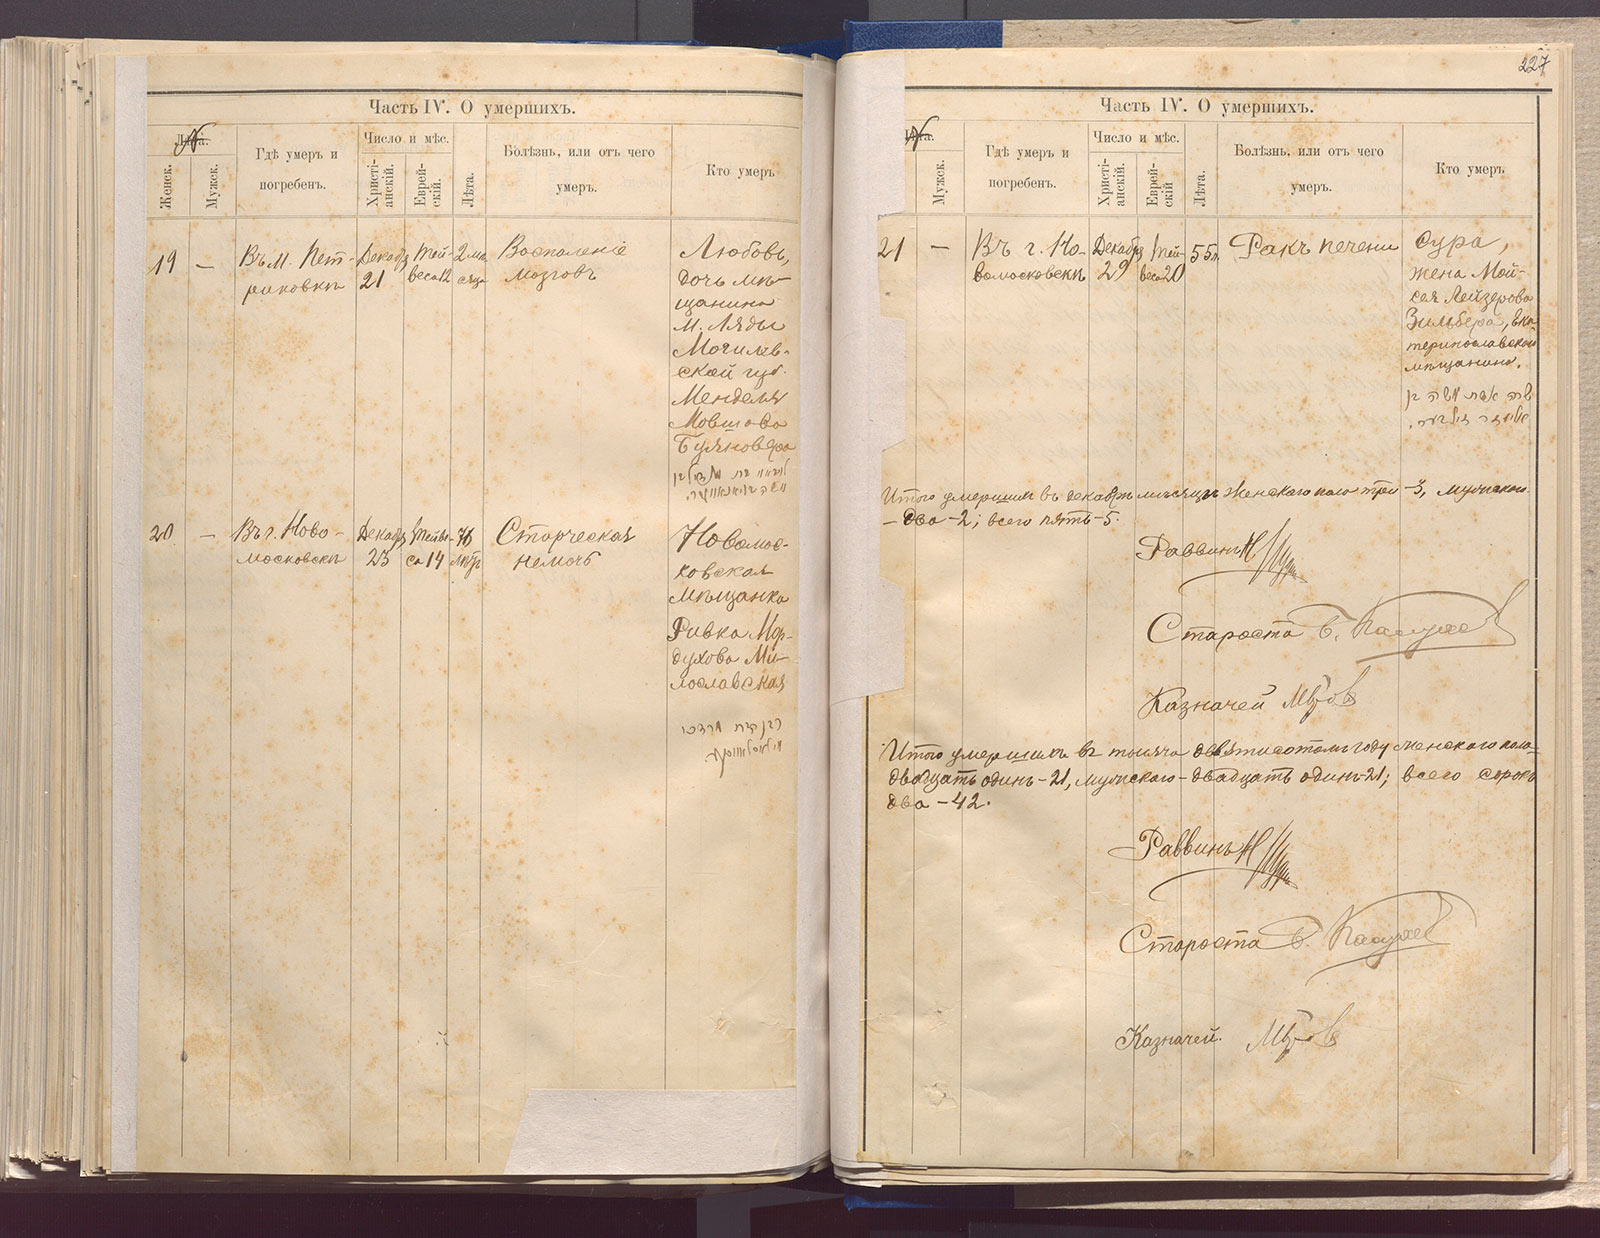 Часть IV. О умершихъ.
№
Женск.
Мужск.
Гдѣ умеръ и
погребенъ.
Число и мѣс.
Христі-
анскій.
Еврей-
скій.
Лѣта.
Болѣзнь, или отъ чего
умеръ.
Кто умеръ
19 —
Въ м. Пет-
риковкѣ
Декабр
21
Тей-
веса 12
2 мѣ
сяца
Воспаленіе
мозговъ
Любовь,
дочь мѣ-
щанина
м. Ляды
Могилев-
ской губ.
Менделя
Мовшова
Буяновера
20 —
Въ г. Ново-
московскѣ
Декабр
23
Тейве-
са 14
лѣтъ
Старческая
немочь
Новомос-
ковская
мѣщанка
Ривка Мор-
духова Ми-
лославская
רבקה בת מרדכי
מילאסלאווסקע
227
Часть IV. О умершихъ.
№
Мужск.
Гдѣ умеръ и
погребенъ.
Число и мѣс.
Христі-
анскій.
Еврей-
скій
Лѣта.
Болѣзнь, или отъ чего
умеръ.
Кто умеръ
21 —
Въ г. Но-
вомосковскѣ
Декабр
29
Тей-
веса 20
55 л.
Ракъ печени
Сура,
жена Мой-
сея Лейзерова
Зильбера, ека-
теринославскаго
мѣщанина.
שרה אשת משה בן
אליעזר זילבער.
Итого умершихъ въ декабрѣ мѣсяцѣ женскаго пола три -3, мужскаго
- два -2; всего пять -5.
Раввинъ
Староста Б.
Казначей
Итого умершихъ въ тысяча девятисотомъ году женскаго пола
двадцать одинъ -21, мужскаго - двадцать одинъ -21; всего сорокъ
два -42.
Раввинъ
Староста Б.
Казначей.